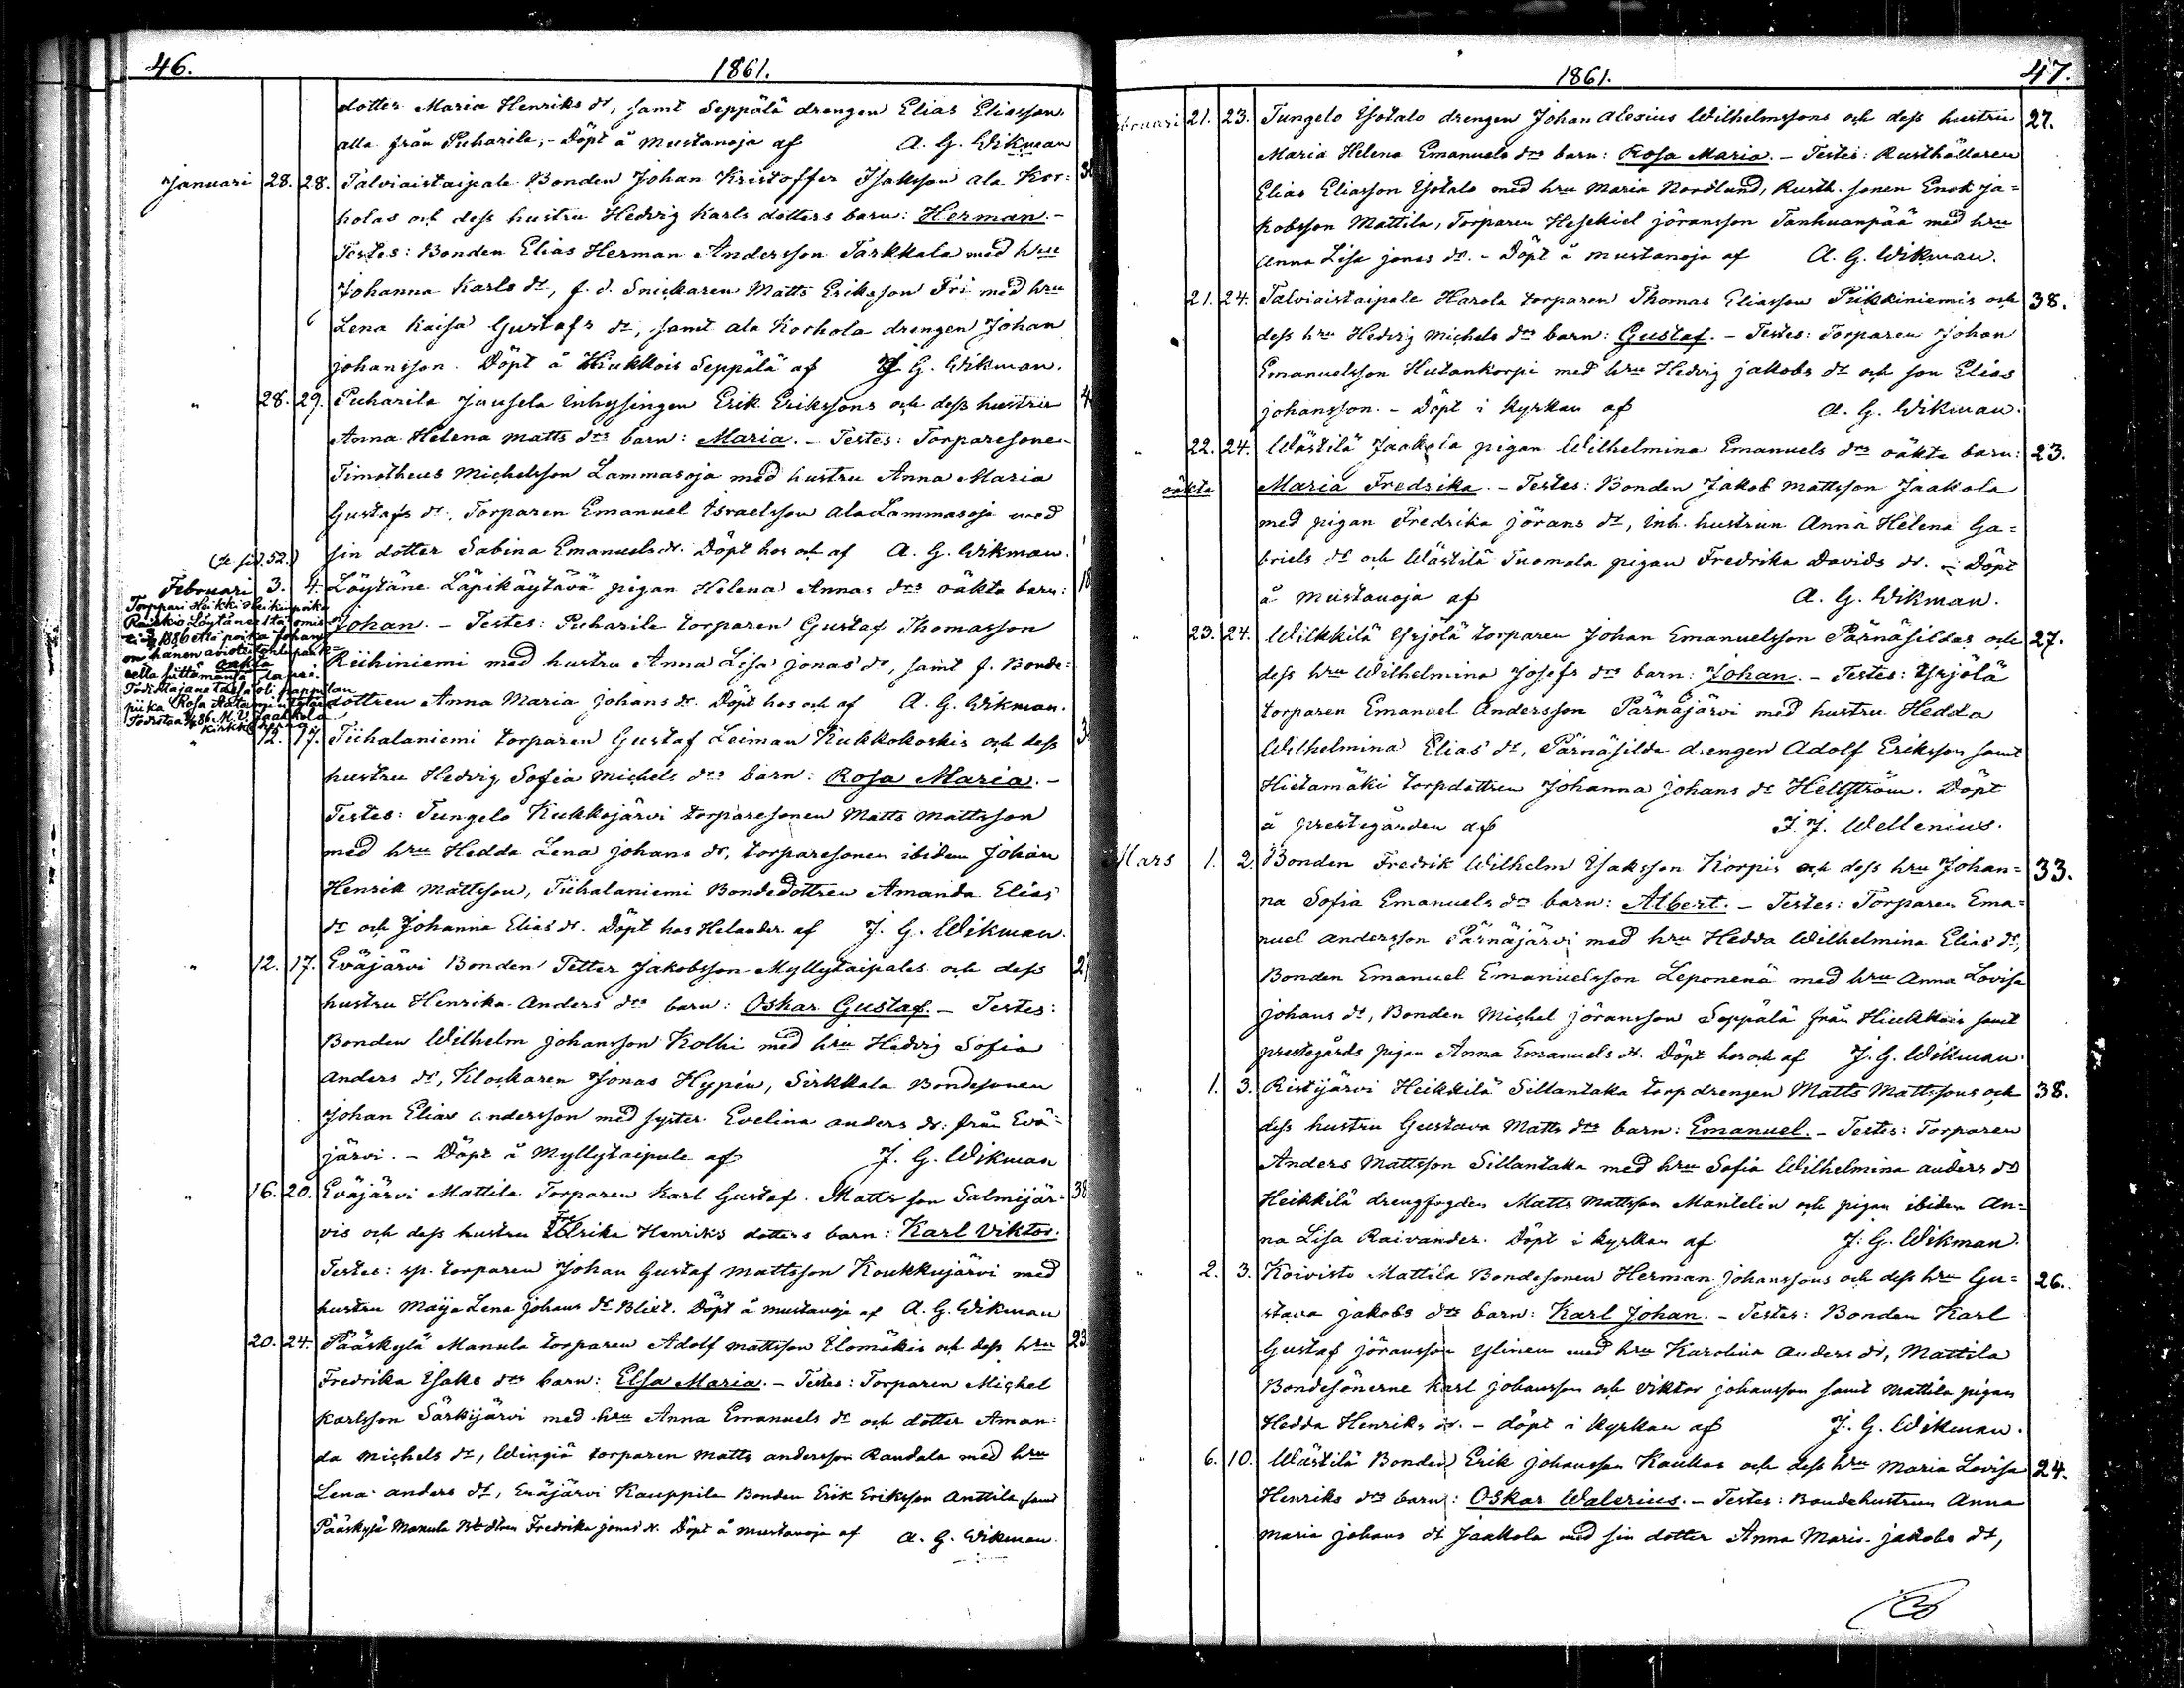 46.
1861.
dotter Maria Henriks dr, samt Seppälä drengen Elias Eliasson,
alla från Puharila, - Döpt å Mustanoja af A. G. Wikman
Januari 28. 28. Talviaistaipale Bonden Johan Kristoffer Isaksson Ala Kor=
holas och dess hustru Hedvig Karls dotters barn: Herman. -
Testes: Bonden Elias Herman Andersson Tarkkala med hru
Johanna Karls dr, f. d. Snickaren Matts Eriksson Fri med hru
Lena Kaisa Gustafs dr, samt Ala Korhola drengen Johan
Johansson. Döpt å Hiukkois Seppälä af J. G. Wikman.
" 28. 29. Puharila Juusela Inhysingen Erik Erikssons och dess hustru
Anna Helena Matts drs barn: Maria. - Testes: Torparesonen
Timotheus Michelsson Lammasoja med hustru Anna Maria
Gustafs dr, Torparen Emanuel Israelsson Ala Lammasoja med
sin dotter Sabina Emanuels dr. Döpt hos och af A. G. Wikman.
Februari 3. 4. Löytäne Läpikäytävä pigan Helena Annas drs oäkta barn:
Torppari Heikki Heikinpoika
Johan. - Testes: Puharila torparen Gustaf Thomasson
Riihiniemi med hustru Anna Lisa Jonas dr, samt f. Bonde=
dottren Anna Maria Johans dr. Döpt hos och af A. G. Wikman.
" 12. 17. Tiihalaniemi torparen Gustaf Leiman Kukkokoskis och dess
hustru Hedvig Sofia Michels drs barn: Rosa Maria. -
Testes: Tungelo Kukkojärvi torparesonen Matts Mattsson
med hru Hedda Lena Johans dr, torparesonen ibidem Johan
Henrik Mattsson, Tiihalaniemi Bondedottren Amanda Elias
dr och Johanna Elias dr. Döpt hos Helander af J. G. Wikman.
" 12. 17. Eväjärvi Bonden Petter Jakobsson Myllytaipales och dess
hustru Henrika Anders drs barn: Oskar Gustaf. - Testes:
Bonden Wilhelm Johansson Kolhi med hru Hedvig Sofia
Anders dr, Klockaren Jonas Hypén, Sirkkala Bondesonen
Johan Elias Andersson med syster Evelina Anders dr: från Evä=
järvi. - Döpt å Myllytaipale af J. G. Wikman
" 16. 20. Eväjärvi Mattila Torparen Karl Gustaf Mattsson Salmijär= 38
vis och dess hustru Ulrika Henriks dotters barn: Karl Viktor.
Testes: sp. torparen Johan Gustaf Mattsson Koukkujärvi med
hustru Maija Lena Johans dr Blixt. Döpt å Mustanoja af A. G. Wikman
20. 24. Pääskylä Manula torparen Adolf Mattsson Elomäkis och dess hru 23
Fredrika Isaks drs barn: Elsa Maria. - Testes: Torparen Michel
Karlsson Särkijärvi med hru Anna Emanuels dr och dotter Aman=
da Michels dr, Wingiä torparen Matts Andersson Randala med hru
Lena Anders dr, Eväjärvi Kauppila Bonden Erik Eriksson Anttila, samt
Pääskylä Manula Fredrika Jonas dr. Döpt å Mustanoja af A. G. Wikman.
1861. 47.
21. 23. Tungelo Isotalo drengen Johan Alexius Wilhelmssons och dess hustru 27.
Maria Helena Emanuels drs barn: Rosa Maria. - Testes: Rusthållaren
Elias Eliasson Isotalo med hru Maria Nordlund, Rusth. sonen Enok Ja=
kobsson Mattila, Torparen Hesekiel Jöransson Tanhuanpää med hru
Anna Lisa Jonas dr. - Döpt å Mustanoja af A. G. Wikman.
" 21. 24. Talviaistaipale Harola torparen Thomas Eliasson Piikkiniemis och 38.
dess hru Hedvig Michels drs barn: Gustaf. - Testes: Torparen Johan
Emanuelsson Hutankorpi med hru Hedvig Jakobs dr och son Elias
Johansson. - Döpt i Kyrkan af A. G. Wikman.
" 22. 24. Wästilä Jaakola pigan Wilhelmina Emanuels drs oäkta barn: 23.
oäkta Maria Fredrika. - Testes: Bonden Jakob Mattsson Jaakola
med pigan Fredrika Jörans dr, Inh. hustrun Anna Helena Ga=
briels dr och Wästilä Tuomala pigan Fredrika Davids dr. - Döpt
å Mustanoja af A. G. Wikman.
" 23. 24. Wilkkilä Yrjölä torparen Johan Emanuelsson Pärnäsildas och 27.
dess hru Wilhelmina Josefs drs barn: Johan. - Testes: Yrjölä
torparen Emanuel Andersson Pärnäjärvi med hustru Hedda
Wilhelmina Elias dr, Pärnäsilda drengen Adolf Eriksson samt
Hietamäki torpdottren Johanna Johans dr Hellström. Döpt
å prestegården af J. J. Wellenius.
Mars 1. 2. Bonden Fredrik Wilhelm Isaksson Korpis och dess hru Johan= 33.
na Sofia Emanuels drs barn: Albert. - Testes: Torparen Ema=
nuel Andersson Pärnäjärvi med hru Hedda Wilhelmina Elias dr,
Bonden Emanuel Emanuelsson Leponenä med hru Anna Lovisa
Johans dr, Bonden Michel Jöransson Seppälä från Hiukkois samt
prestegårds pigan Anna Emanuels dr. Döpt hos och af J. G. Wikman.
" 1. 3. Ristijärvi Heikkilä Sillantaka torp drengen Matts Mattssons och 38.
dess hustru Gustava Matts drs barn: Emanuel. - Testes: Torparen
Anders Mattsson Sillantaka med hru Sofia Wilhelmina Anders dr
Heikkilä drengfogden Matts Mattsson Mantelin och pigan ibidem An=
na Lisa Raivander. Döpt i Kyrkan af J. G. Wikman.
" 2. 3. Koivisto Mattila Bondesonen Herman Johanssons och dess hru Gu= 26.
stava Jakobs drs barn: Karl Johan. - Testes: Bonden Karl
Gustaf Jöransson Ylinen med hru Karolina Anders dr, Mattila
Bondesönerne Karl Johansson och Viktor Johansson samt Mattila pigan
Hedda Henriks dr. - döpt i Kyrkan af J. G. Wikman.
" 6. 10. Wästilä Bonden Erik Johansson Kaukas och dess hru Maria Lovisa 24.
Henriks drs barn: Oskar Walerius. - Testes: Bondehustrun Anna
Maria Johans dr Jaakola med sin dotter Anna Maria Jakobs dr,